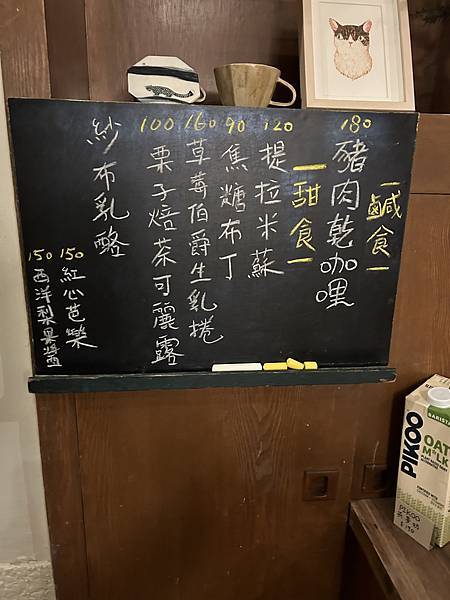 —鹹食—
180
豬肉乾咖哩
—甜食—
120
提拉米蘇
90
焦糖布丁
160
草莓伯爵生乳捲
100
栗子焙茶可麗露
紗布乳酪
150
紅心芭樂
150
西洋梨果醬
BARISTA
PIKOO
OAT
M*LK
PIKOO